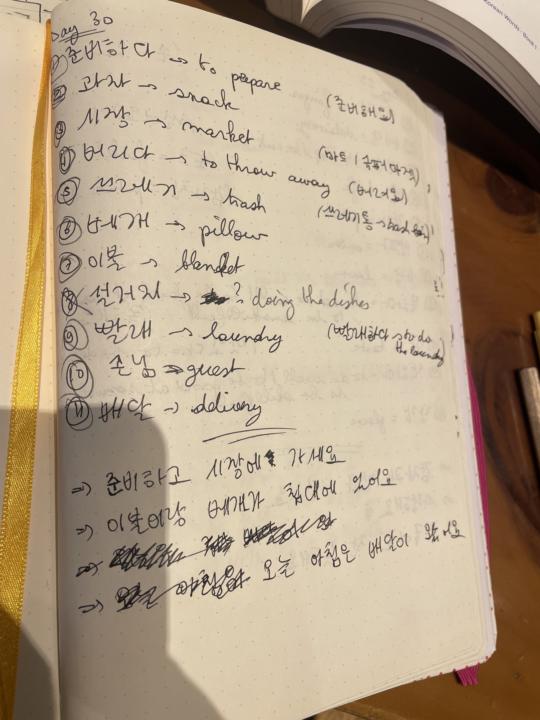 Korean Words - Book 1
Day 30
① 준비하다 → to prepare (준비해요)
② 과자 → snack
③ 시장 → market
④ 버리다 → to throw away (버려요)
⑤ 쓰레기 → trash
⑥ 베개 → pillow
⑦ 이불 → blanket
⑧ 설거지 → ? doing the dishes
⑨ 빨래 → laundry (빨래하다 → to do the laundry)
⑩ 손님 → guest
⑪ 배달 → delivery
⇒ 준비하고 시장에 가세요
⇒ 이불이랑 베개가 침대에 있어요
⇒ 오늘 아침은 배달이 왔어요